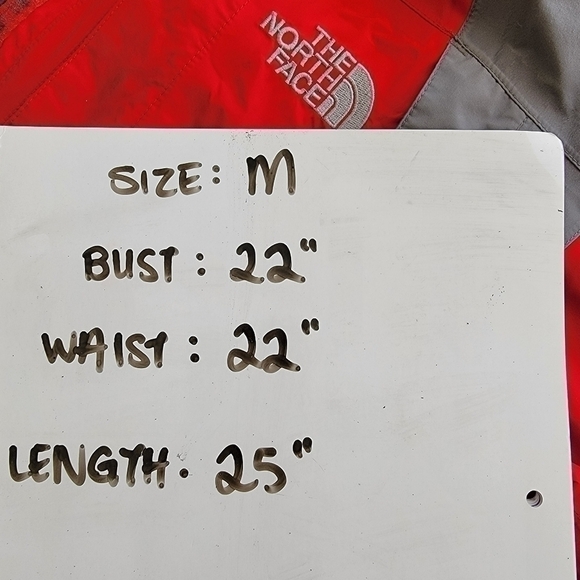 THE
NORTH
FACE
SIZE: M
BUST: 22"
WAIST: 22"
LENGTH. 25"